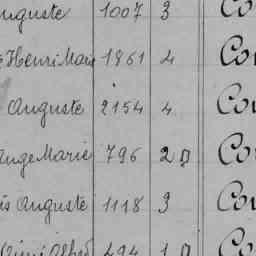 Auguste 1007 3 Co
Henri Mari 1861 4 Co
Auguste 2154 4 Co
Ange Marie 796 2 D Co
is Auguste 1118 3 Co
Aimé Alfred 494 1 D Co